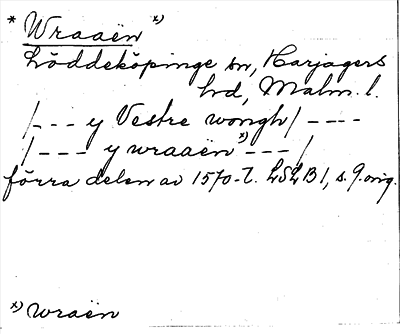 * Wraaën x)
Löddeköpinge sn, Harjagers
hd, Malm. l.
/--- y Vestre wongh/ ----
/--- y wraaën x) --- /
förra delen av 1570-t. LSLB 1, s. 9. orig.
x) wraën